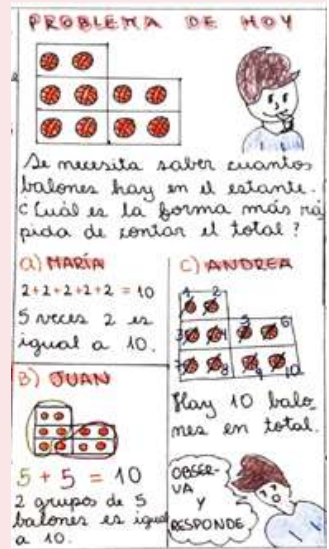 PROBLEMA DE HOY
Se necesita saber cuantos
balones hay en el estante.
¿Cuál es la forma más rá
pida de contar el total?
a) MARÍA
2+2+2+2+2 = 10
5 veces 2 es
igual a 10.
B) JUAN
5 + 5 = 10
2 grupos de 5
balones es igual
a 10.
C) ANDREA
1 2
3 4 5 6
7 8 9 10
Hay 10 balo-
nes en total.
OBSER-
VA
Y
RESPONDE